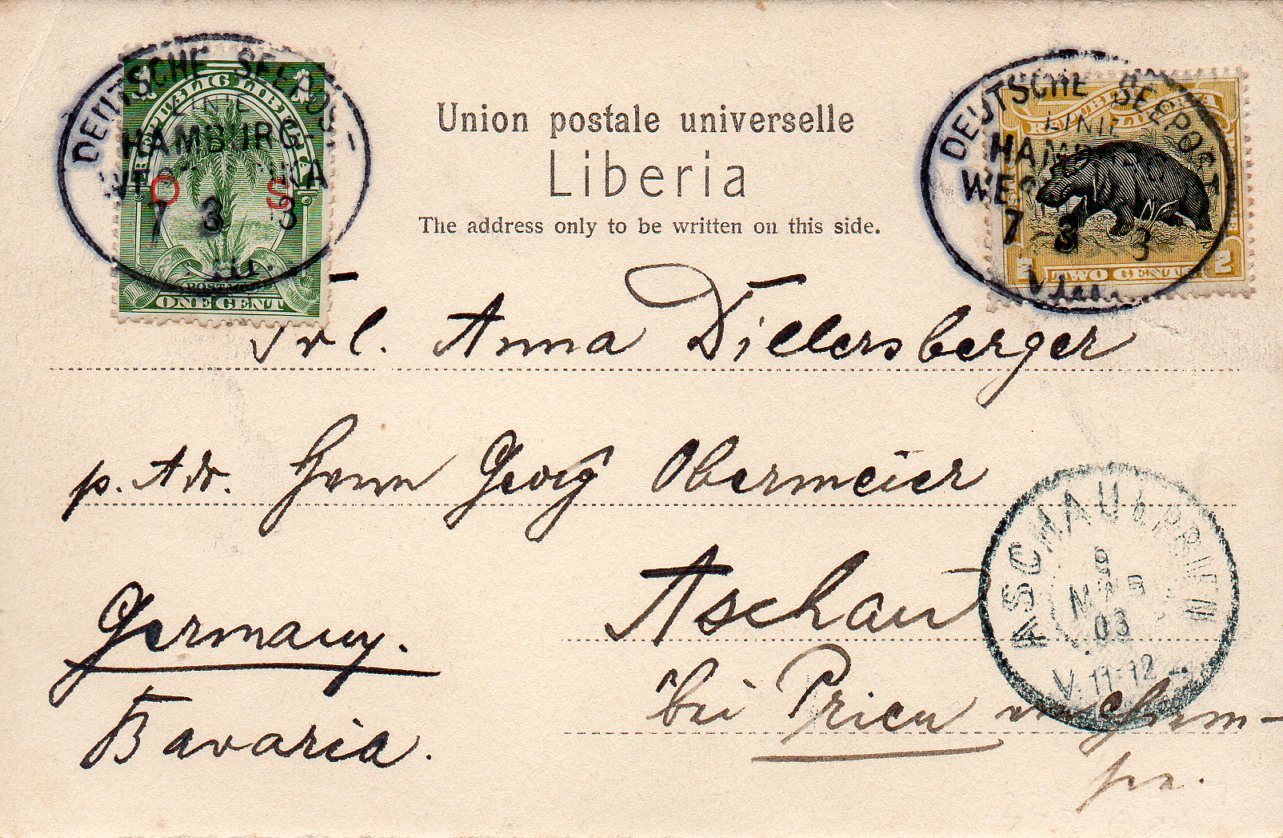 DEUTSCHE SEEPOST
LINIE
HAMBURG
WESTAFRIKA
7 3 3
REPUBLIC
O S
POSTAGE
ONE CENT
Union postale universelle
Liberia
The address only to be written on this side.
DEUTSCHE SEEPOST
LINIE
HAMBURG
7 3 3
REPUBLIC LIBERIA
2 TWO CENTS 2
Frl. Anna Dillersberger
p. Adr. Herrn Georg Obermeier
Aschau
bei Prien
Germany.
Bavaria.
ASCHAU b/PRIEN
9
MAR
03
V. 11-12